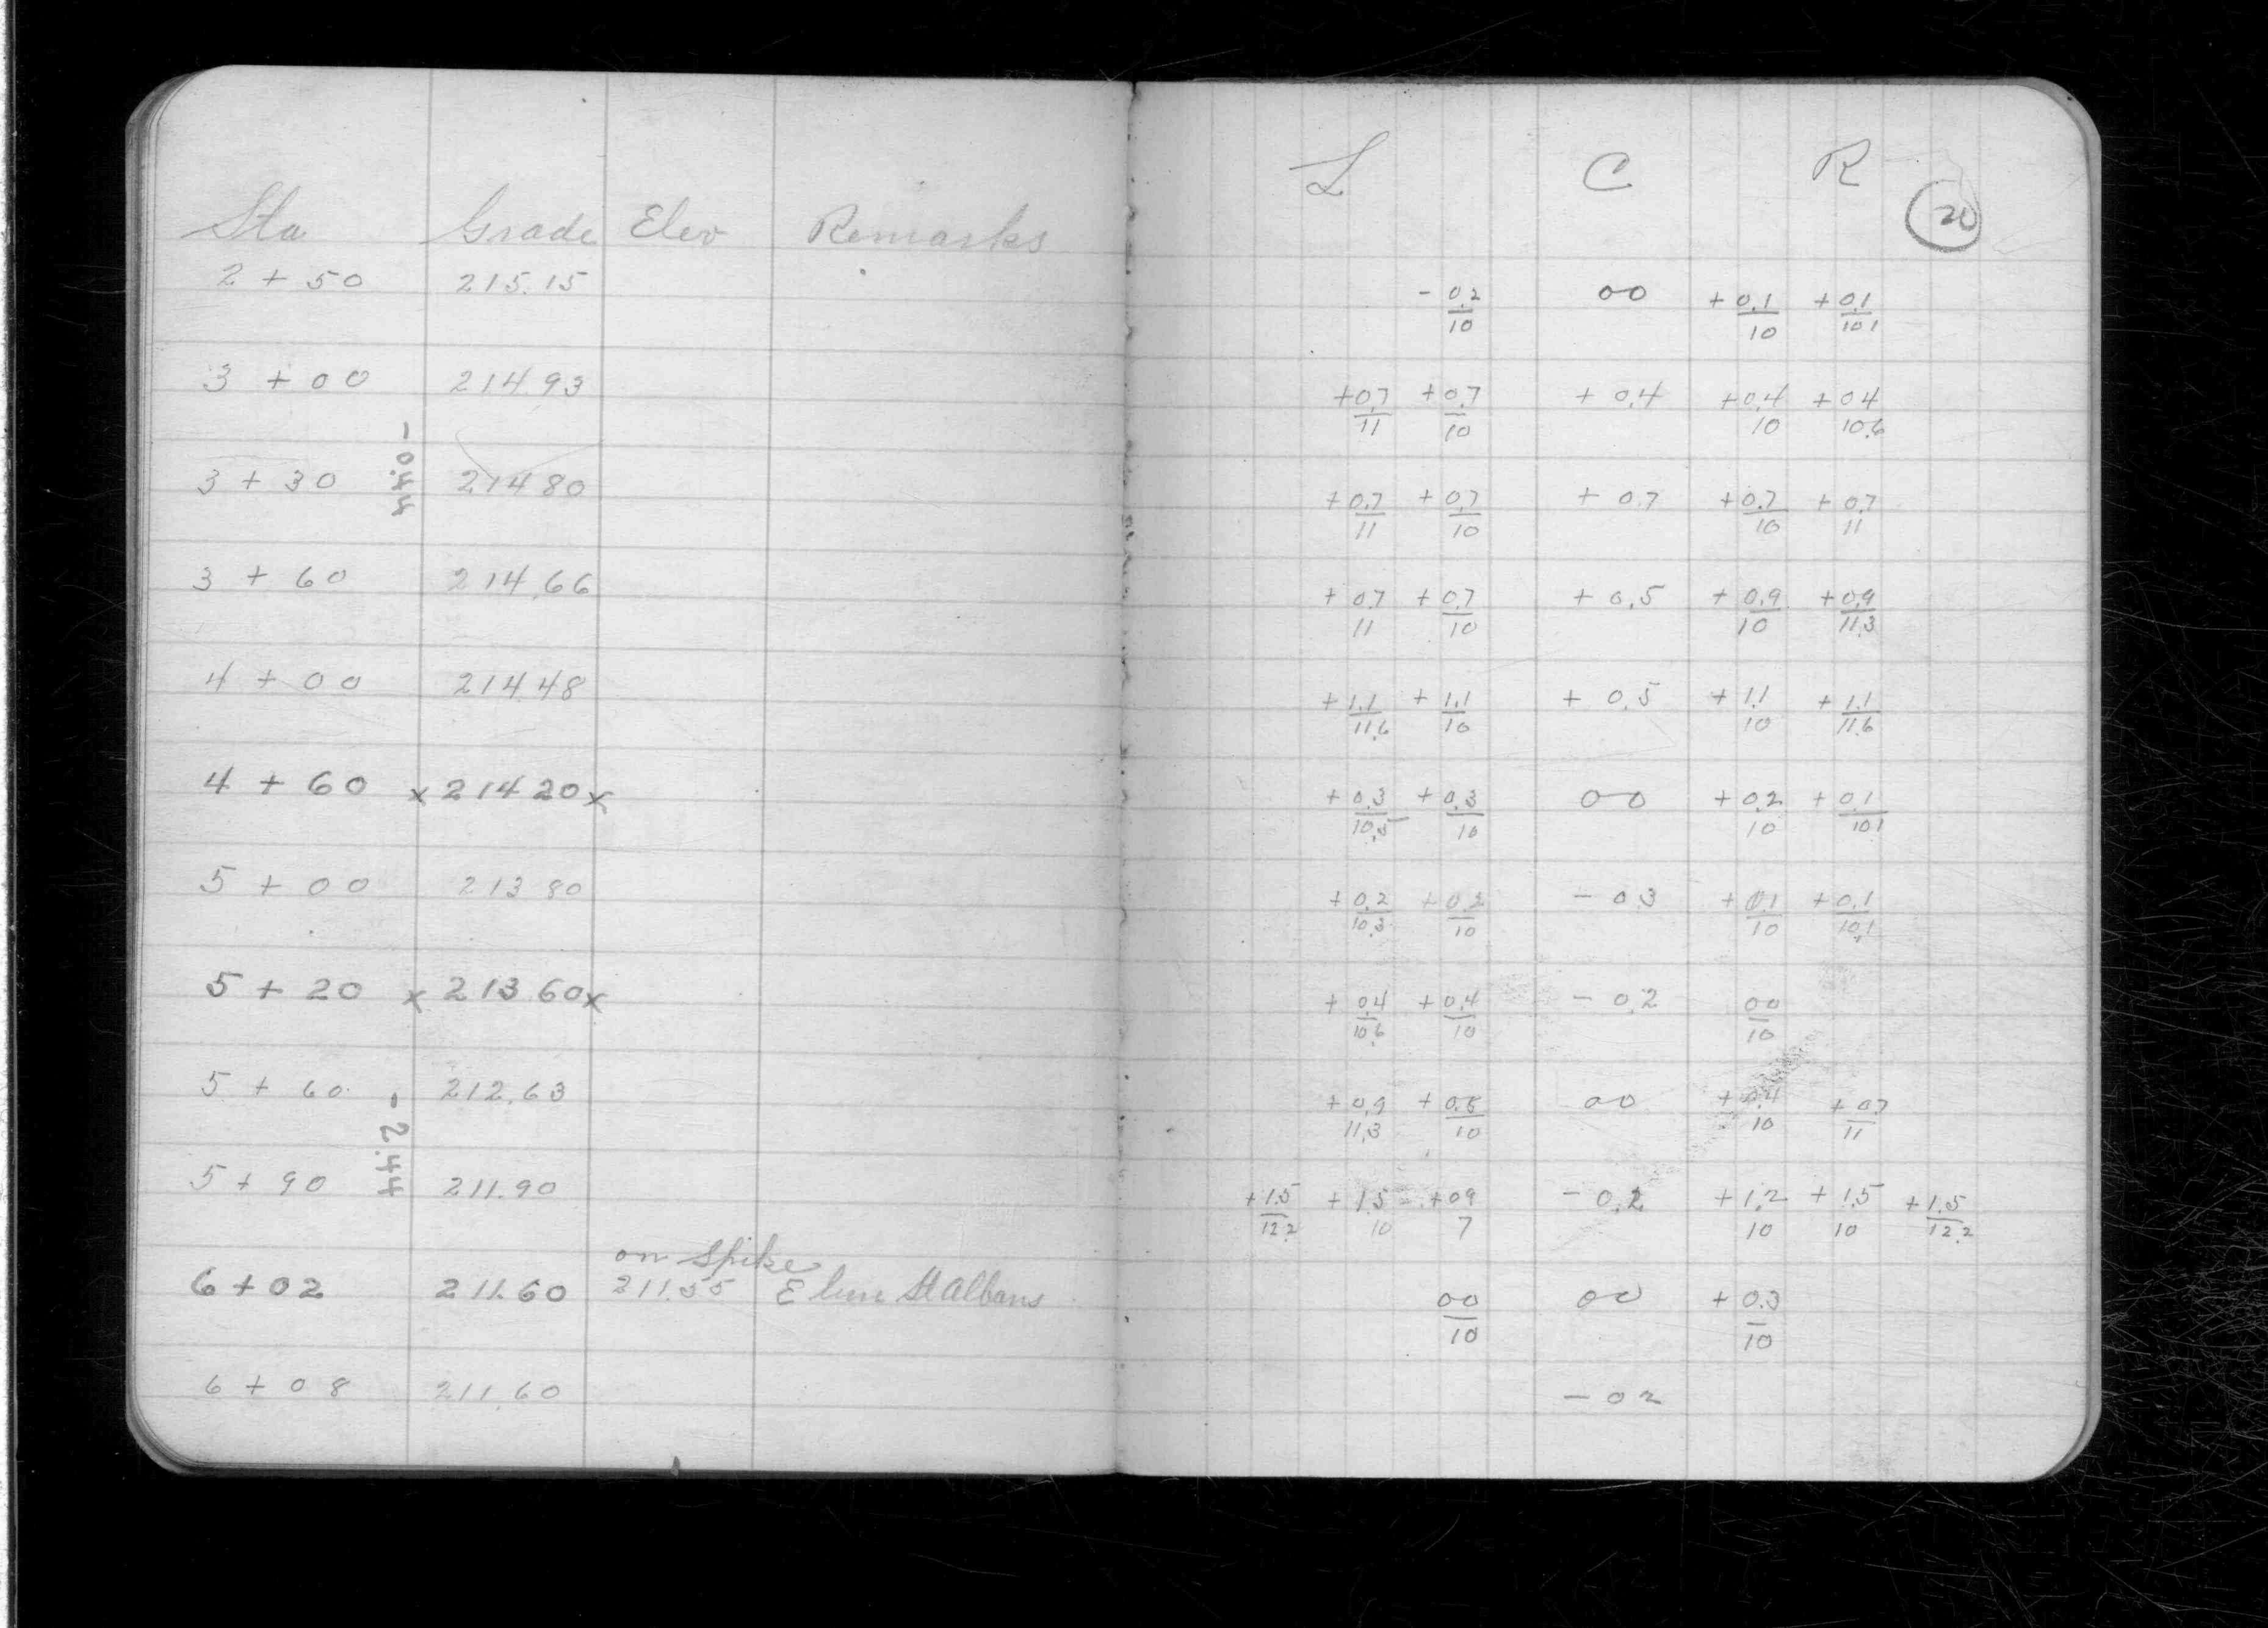 Sta Grade Elev Remarks
2 + 50 215.15
3 + 00 214.93
-0.44
3 + 30 214 80
3 + 60 214.66
4 + 00 214.48
4 + 60 x 214 20 x
5 + 00 213 80
5 + 20 x 213 60 x
5 + 60 212.63
- 2.44
5 + 90 211.90
on Spike
6 + 02 211.60 211.55 E line St Albans
6 + 08 211.60
L C R
20
- 0.2 00 + 0.1 + 0.1
10 10 10 1
+ 0.7 + 0.7 + 0.4 + 0.4 + 0 4
11 10 10 10.6
+ 0.7 + 0.7 + 0.7 + 0.7 + 0.7
11 10 10 11
+ 0.7 + 0.7 + 0.5 + 0.9 + 0.9
11 10 10 11.3
+ 1.1 + 1.1 + 0.5 + 1.1 + 1.1
11.6 10 10 11.6
+ 0.3 + 0.3 00 + 0.2 + 0.1
10.5 10 10 10 1
+ 0.2 + 0.2 - 0 3 + 0.1 + 0.1
10.3 10 10 10.1
+ 0.4 + 0.4 - 0.2 00
10.6 10 10
+ 0.9 + 00 + 0.4 + 0.7
11.3 10 10 11
+ 1.5 + 1.5 + 0 9 - 0.2 + 1.2 + 1.5 + 1.5
12.2 10 7 10 10 12.2
00 00 + 0.3
10 10
- 0 2